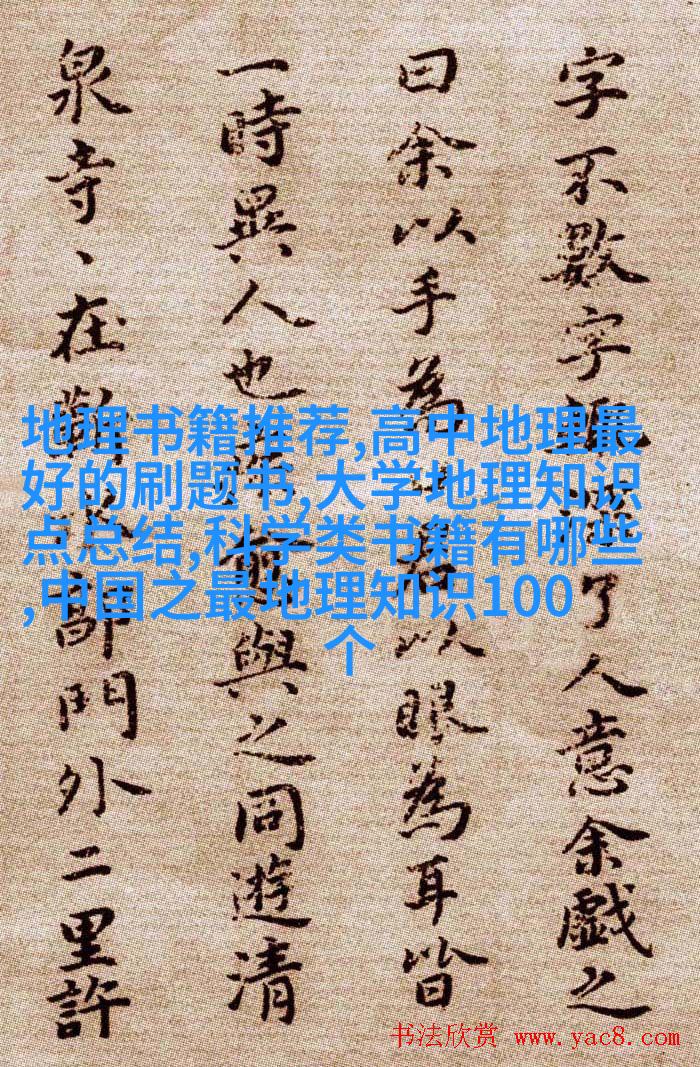 字不數字了人意余戲之
曰余以手為以眼為耳皆
一時異人也與之同遊清
泉寺、在門外二里許
地理书籍推荐,高中地理最
好的刷题书,大学地理知识
点总结,科学类书籍有哪些
,中国之最地理知识100
个
书法欣赏 www.yac8.com